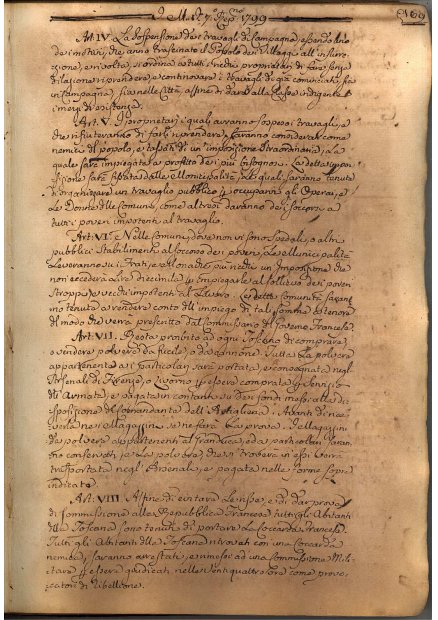 1799
169
Art. IV. La Sospensione dei travagli di Campagna, essendo
dei motivi, che anno trascinato il Popolo dei Villaggi all' insur-
rezione, e rivolta, si ordina a tutti i proprietari di fare senza
dilazione riprendere, e continovare i travagli di già cominciati, sia
in Campagna, sia nelle Città, affine di dare alla Classe indigente
i mezzi di esistenza.
Art. V. I proprietari i quali avranno sospesi i travagli, e
che rifiuteranno di farli riprendere, saranno considerati come
nemici del popolo, e tassati di un' imposizione straordinaria, la
quale sarà impiegata a profitto dei più bisognosi. La detta impo-
sizione sarà fissata dalle Municipalità, le quali saranno tenute
di organizzare un travaglio pubblico per occuparvi gli Operai, e
le Donne delle Comuni, come altresì daranno dei soccorsi a
tutti i poveri impotenti al travaglio.
Art. VI. Nelle Comuni, dove non vi sono Spedali, o altri
pubblici Stabilimenti al soccorso dei poveri, le Municipalità
leveranno su i Frati, e altri più ricchi un Imposizione che
non eccederà Lire diecimila per impiegarle al sollievo dei poveri
stroppi, e vecchi impotenti al Lavoro. Le dette Comunità saran-
no tenute a rendere conto dell' impiego di tal somma a tenore
del modo che verrà prescritto dal Commissario del Governo Francese.
Art. VII. Resta proibito ad ogni Toscano di comprare,
o vendere polvere da fucile, o da cannone. Tutta la polvere
appartenente a i particolari sarà portata, e consegnata negli
Arsenali di Firenze, o Livorno per essere comprata per servizio
dell' Armata, e pagata in contante su dei fondi messi alla di-
sposizione del Comandante dell' Artiglieria. Avanti di rice-
verla nei Magazzini se ne farà la prova. I Magazzini
di polvere appartenenti al Granduca, e da particolari saran-
no conservati, e la polvere, che vi si troverà in essi verrà
trasportata negli Arsenali, e pagata nelle forme sopra
indicate.
Art. VIII. Affine di evitare le risse, e di dar prova
di sommissione alla Repubblica Francese tutti gli Abitanti
della Toscana sono tenuti di portare la Coccarda Francese.
Tutti gli Abitanti della Toscana trovati con una coccarda
nemica, saranno arrestati, e rimessi ad una Commissione Mili-
tare per essere giudicati nelle Ventiquattro ore come provo-
catori di ribellione.